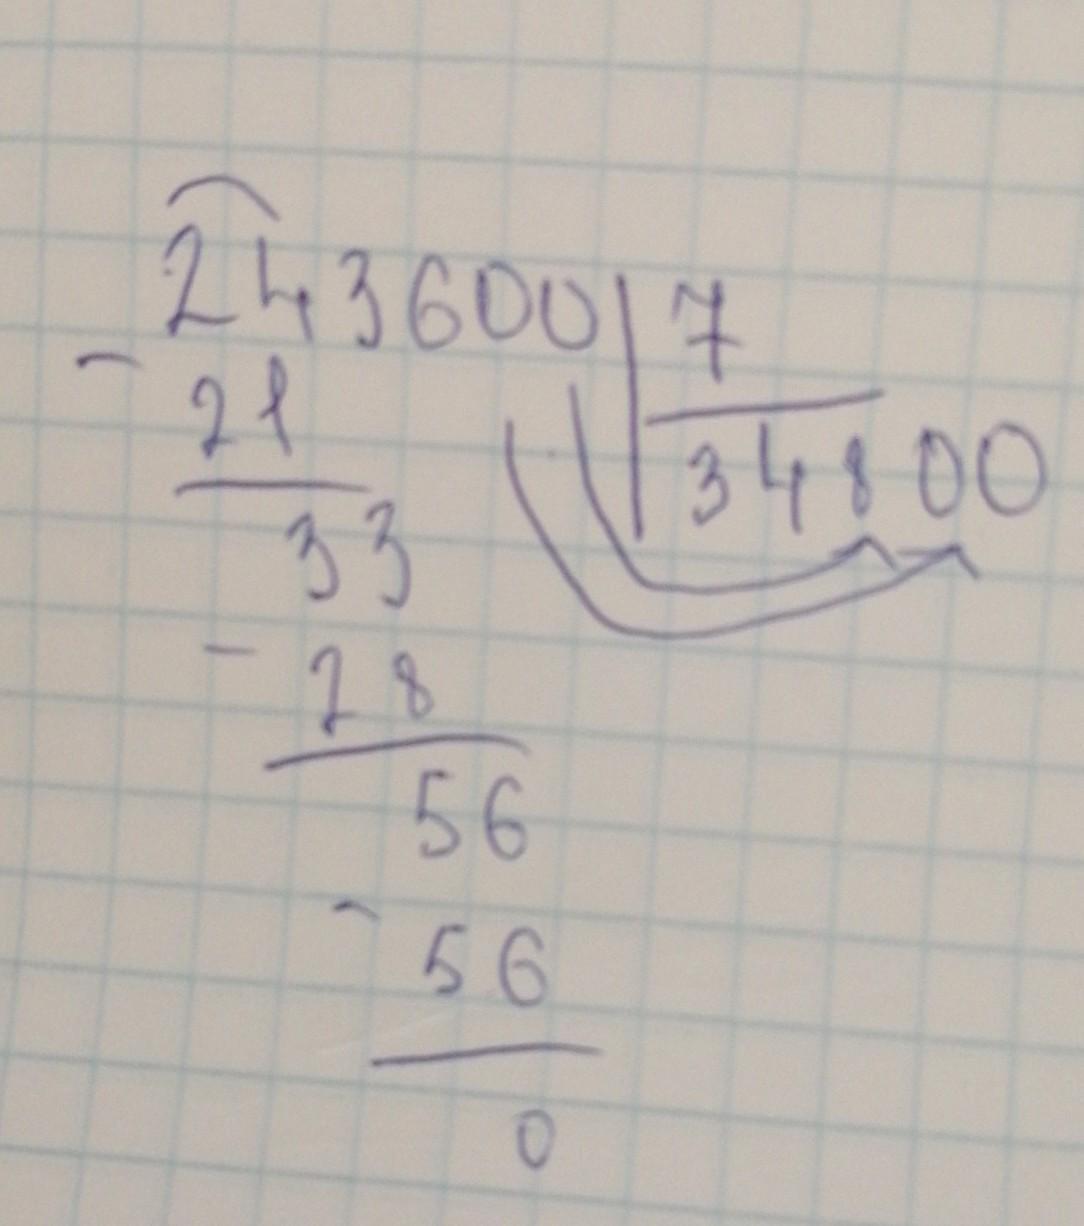 243600 7
34800
- 21
33
- 28
56
- 56
0